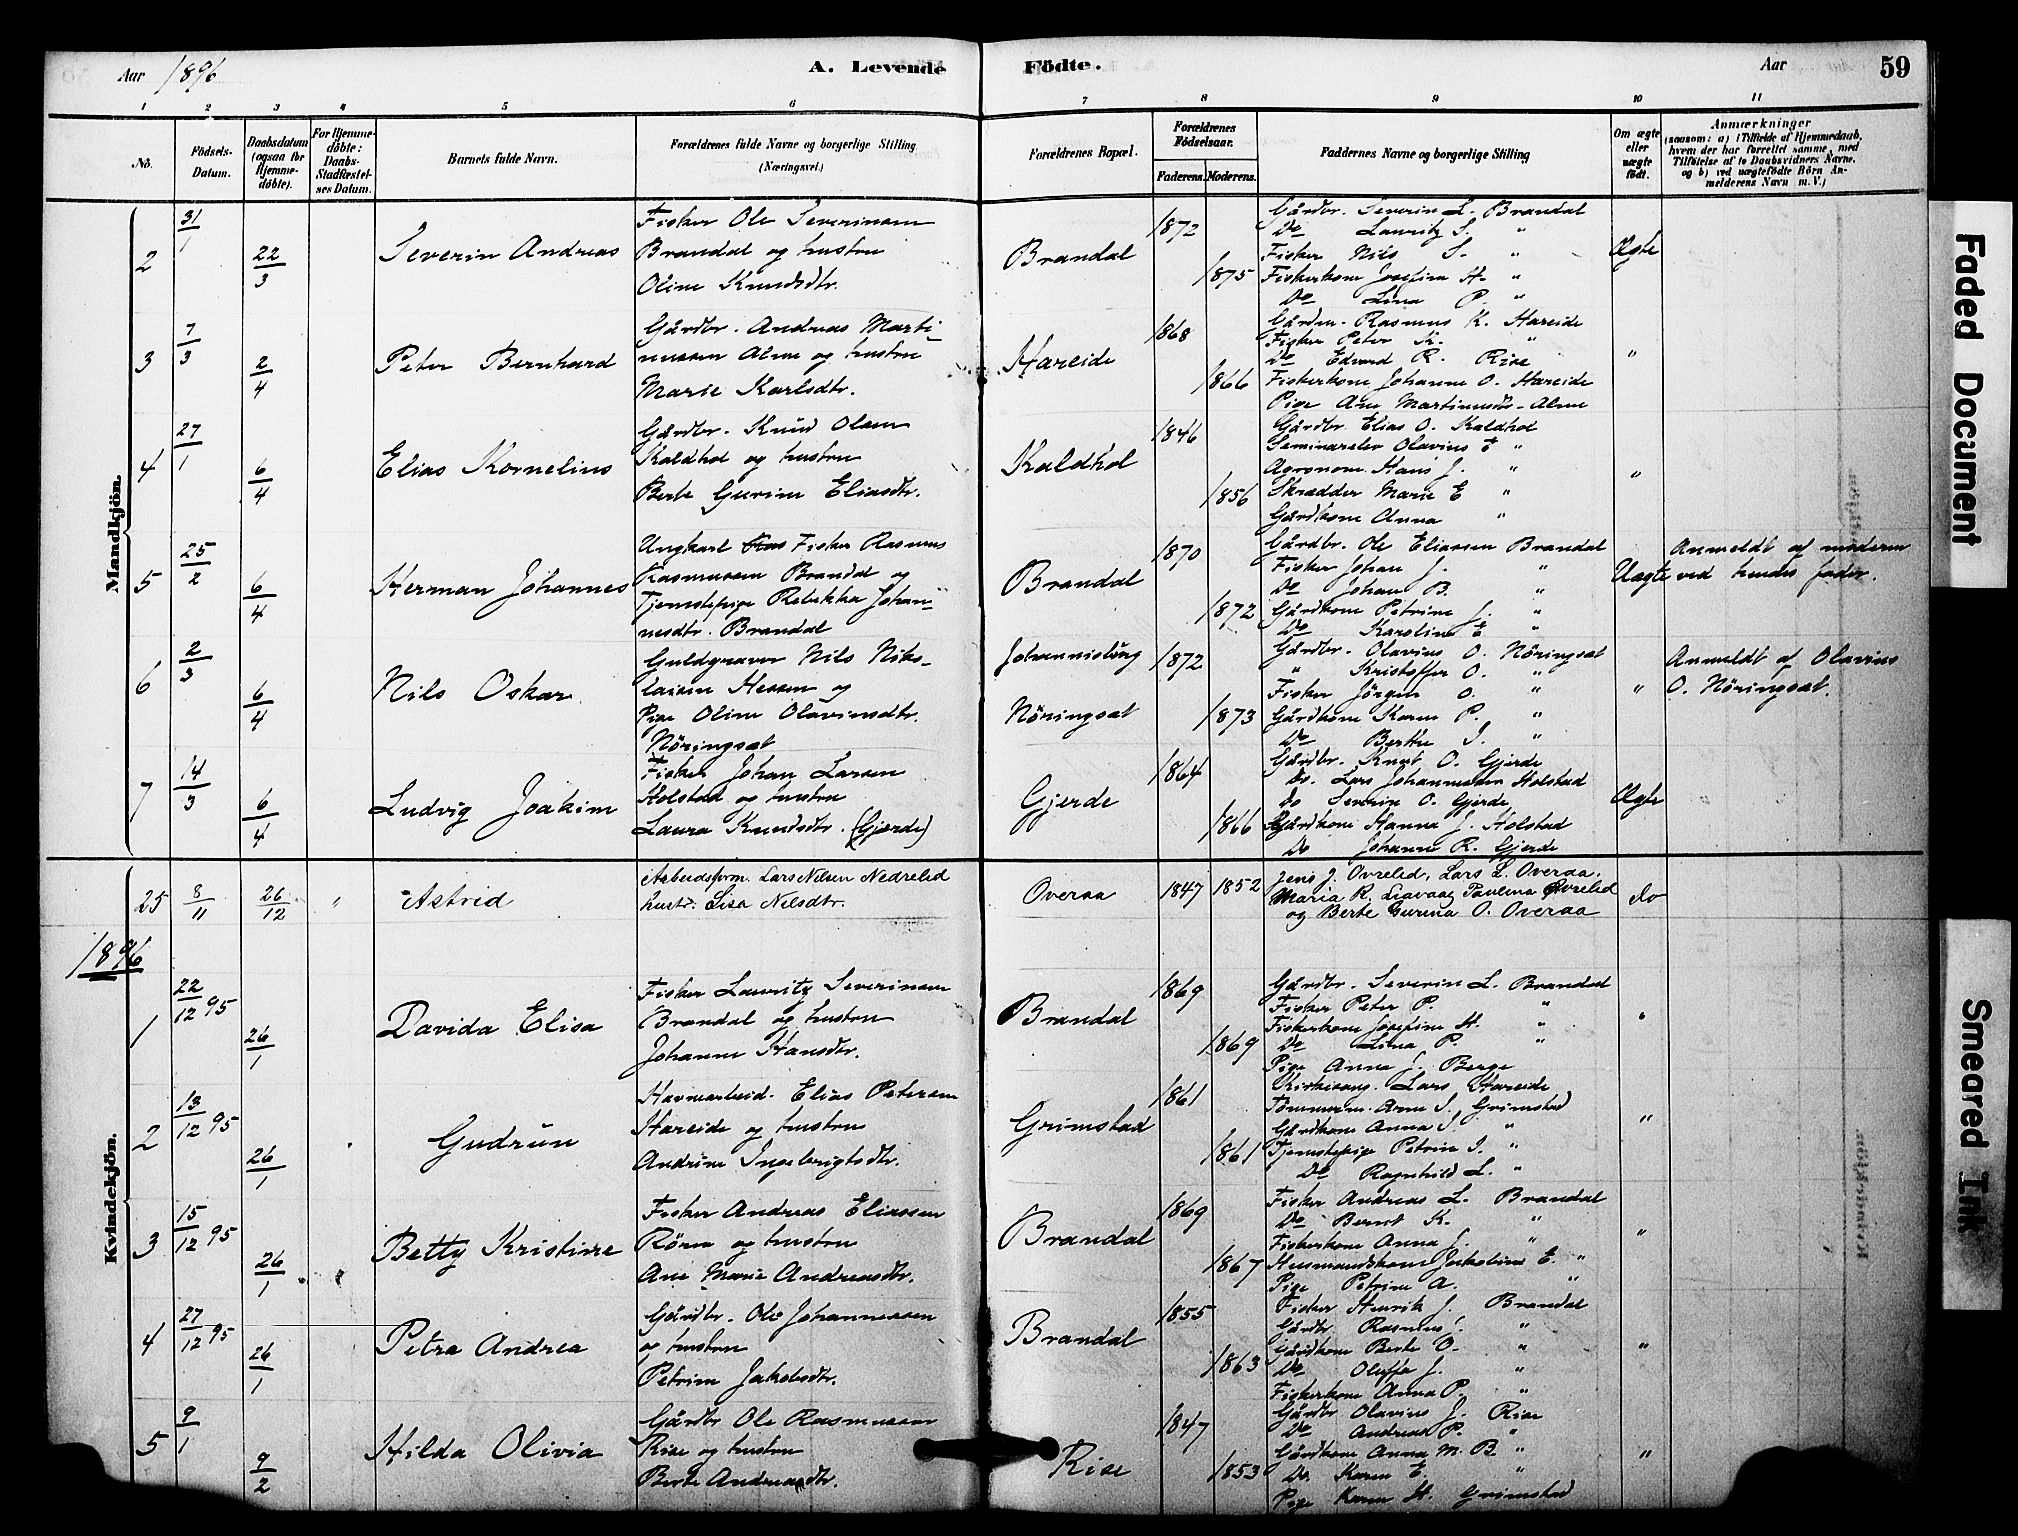 Aar 1896
A. Levende Födte.
Aar
59
1 2 3 4 5 6 7 8 9 10 11
No.
Födsels-Datum.
Daabsdatum (ogsaa for Hjemme-döbte).
For Hjemme-döbte: Daabs-Stadfæstel-ses Datum.
Barnets fulde Navn.
Forældrenes fulde Navne og borgerlige Stilling (Næringsvei.)
Forældrenes Bopæl.
Forældrenes Födselsaar.
Faderens. Moderens.
Faddernes Navne og borgerlige Stilling
Om ægte eller uægte födt.
Anmærkninger
(saasom: a) i Tilfælde af Hjemmedaab,
hvem der har forrettet samme, med
Tilföielse af to Daabsvidners Navne.
og b) ved uægtefödte Börn An-
melderens Navn m. V.)
Mandkjön.
2 31/1 22/3 Severin Andreas
Fisker Ole Severinsen
Brandal og hustru
Oline Knudsdtr.
Brandal 1872 1875
Gårdbr. Severin L. Brandal
Do Lauritz S. "
Fisker Nils S. "
Fiskerkone Josefine H. "
Do Lina P. "
Ægte
3 7/3 2/4 Peter Bernhard
Gårdbr. Andreas Marti-
nussen Alme og hustru
Marie Karlsdtr.
Hareide 1868 1866
Gårdm. Rasmus K. Hareide
Fisker Peter K. "
Do Edvard R. Rise
Fiskerkone Johanne O. Hareide
Pige Ane Martinusdtr. Alme
"
4 27/1 6/4 Elias Kornelius
Gårdbr. Knud Olsen
Kaldhol og hustru
Berte Gurine Eliasdtr.
Kaldhol 1846 1856
Gårdbr. Elias O. Kaldhol
Seminarelev Olavius E "
Agronom Hans J. "
Skrædder Marie E "
Gårdkone Anna "
"
5 25/2 6/4 Herman Johannes
Ungkarl Fisker Rasmus
Rasmussen Brandal og
Tjenestepige Rebekka Johan-
nesdtr. Brandal
Brandal 1870 1872
Gårdbr. Ole Eliassen Brandal
Fisker Johan J. "
Do Johan B. "
Gårdkone Petrine J. "
Do Karoline E "
Uægte
Anmeldt af moderen
ved hendes fader.
6 2/3 6/4 Nils Oskar
Guldgraver Nils Niko-
laisen Hessen og
Pige Oline Olavinsdtr.
Nöringsæt
Johannisburg
Nöringsæt 1872 1873
Gårdbr. Olavius O. Nöringsæt
" Kristoffer O. "
Fisker Jörgen O. "
Gårdkone Karen P. "
Do Berthe J. "
"
Anmeldt af Olavius
O. Nöringsæt.
7 14/3 6/4 Ludvig Joakim
Fisker Johan Larsen
Holstad og hustru
Laura Knudsdtr. (Gjerde)
Gjerde 1864 1866
Gårdbr. Knut O. Gjerde
Do. Lars Johannessen Holstad
Do Severin O. Gjerde
Gårdkone Hanna J. Holstad
Do Johanne R. Gjerde
Ægte
Kvindekjön.
25 8/11 26/12 " Astrid
Arbeidsform. Lars Nilsen Nedrelid
hustr. Lisa Nilsdtr.
Overaa 1847 1852
Jens J. Ovrelid, Lars L. Overaa,
Maria R. Liavaag Paulina Ovrelid
og Berte Gurina O. Overaa
do
1896
1 22/12 95 26/1 Davida Elisa
Fisker Lauritz Severinsen
Brandal og hustru
Johanne Hansdtr.
Brandal 1869 1869
Gårdbr. Severin L. Brandal
Fisker Peter P. "
Fiskerkone Josefine H. "
Do Lina P. "
Pige Anna J. Berge
2 13/12 95 26/1 Gudrun
Havnearbeid. Elias Petersen
Hareide og hustru
Andrine Ingebrigtsdtr.
Grimstad 1861 1861
Kirkesang. Lars Hareide
Tömmerm. Arne I. Grimstad
Gårdkone Anna I. "
Tjenestepige Petrine I. "
Do Ragnhild L. "
"
3 15/12 95 26/1 Betty Kristine
Fisker Andreas Eliassen
Rören og hustru
Ane Marie Andreasdtr.
Brandal 1869 1867
Fisker Andreas L. Brandal
Do Bernt K. "
Fiskerkone Anna J. "
Husmandskone Jakobine E. "
Pige Petrine A. "
"
4 27/12 95 26/1 Petra Andrea
Gårdbr. Ole Johannessen
og hustru
Petrine Jakobsdtr.
Brandal 1855 1863
Fisker Henrik J. Brandal
Gårdbr. Rasmus "
Gårdkone Berte O. "
Do Oluffa J. "
Fiskerkone Anna P. "
"
5 9/1 9/2 Hilda Olivia
Gårdbr Ole Rasmussen
Rise og hustru
Berte Andreasdtr.
Rise 1847 1853
Gårdbr Olavius J. Rise
Do Andreas P. "
Gårdkone Anna M. B. "
Do. Karen E. "
Pige Karen H. Grimstad
"
Faded Document
Smeared Ink